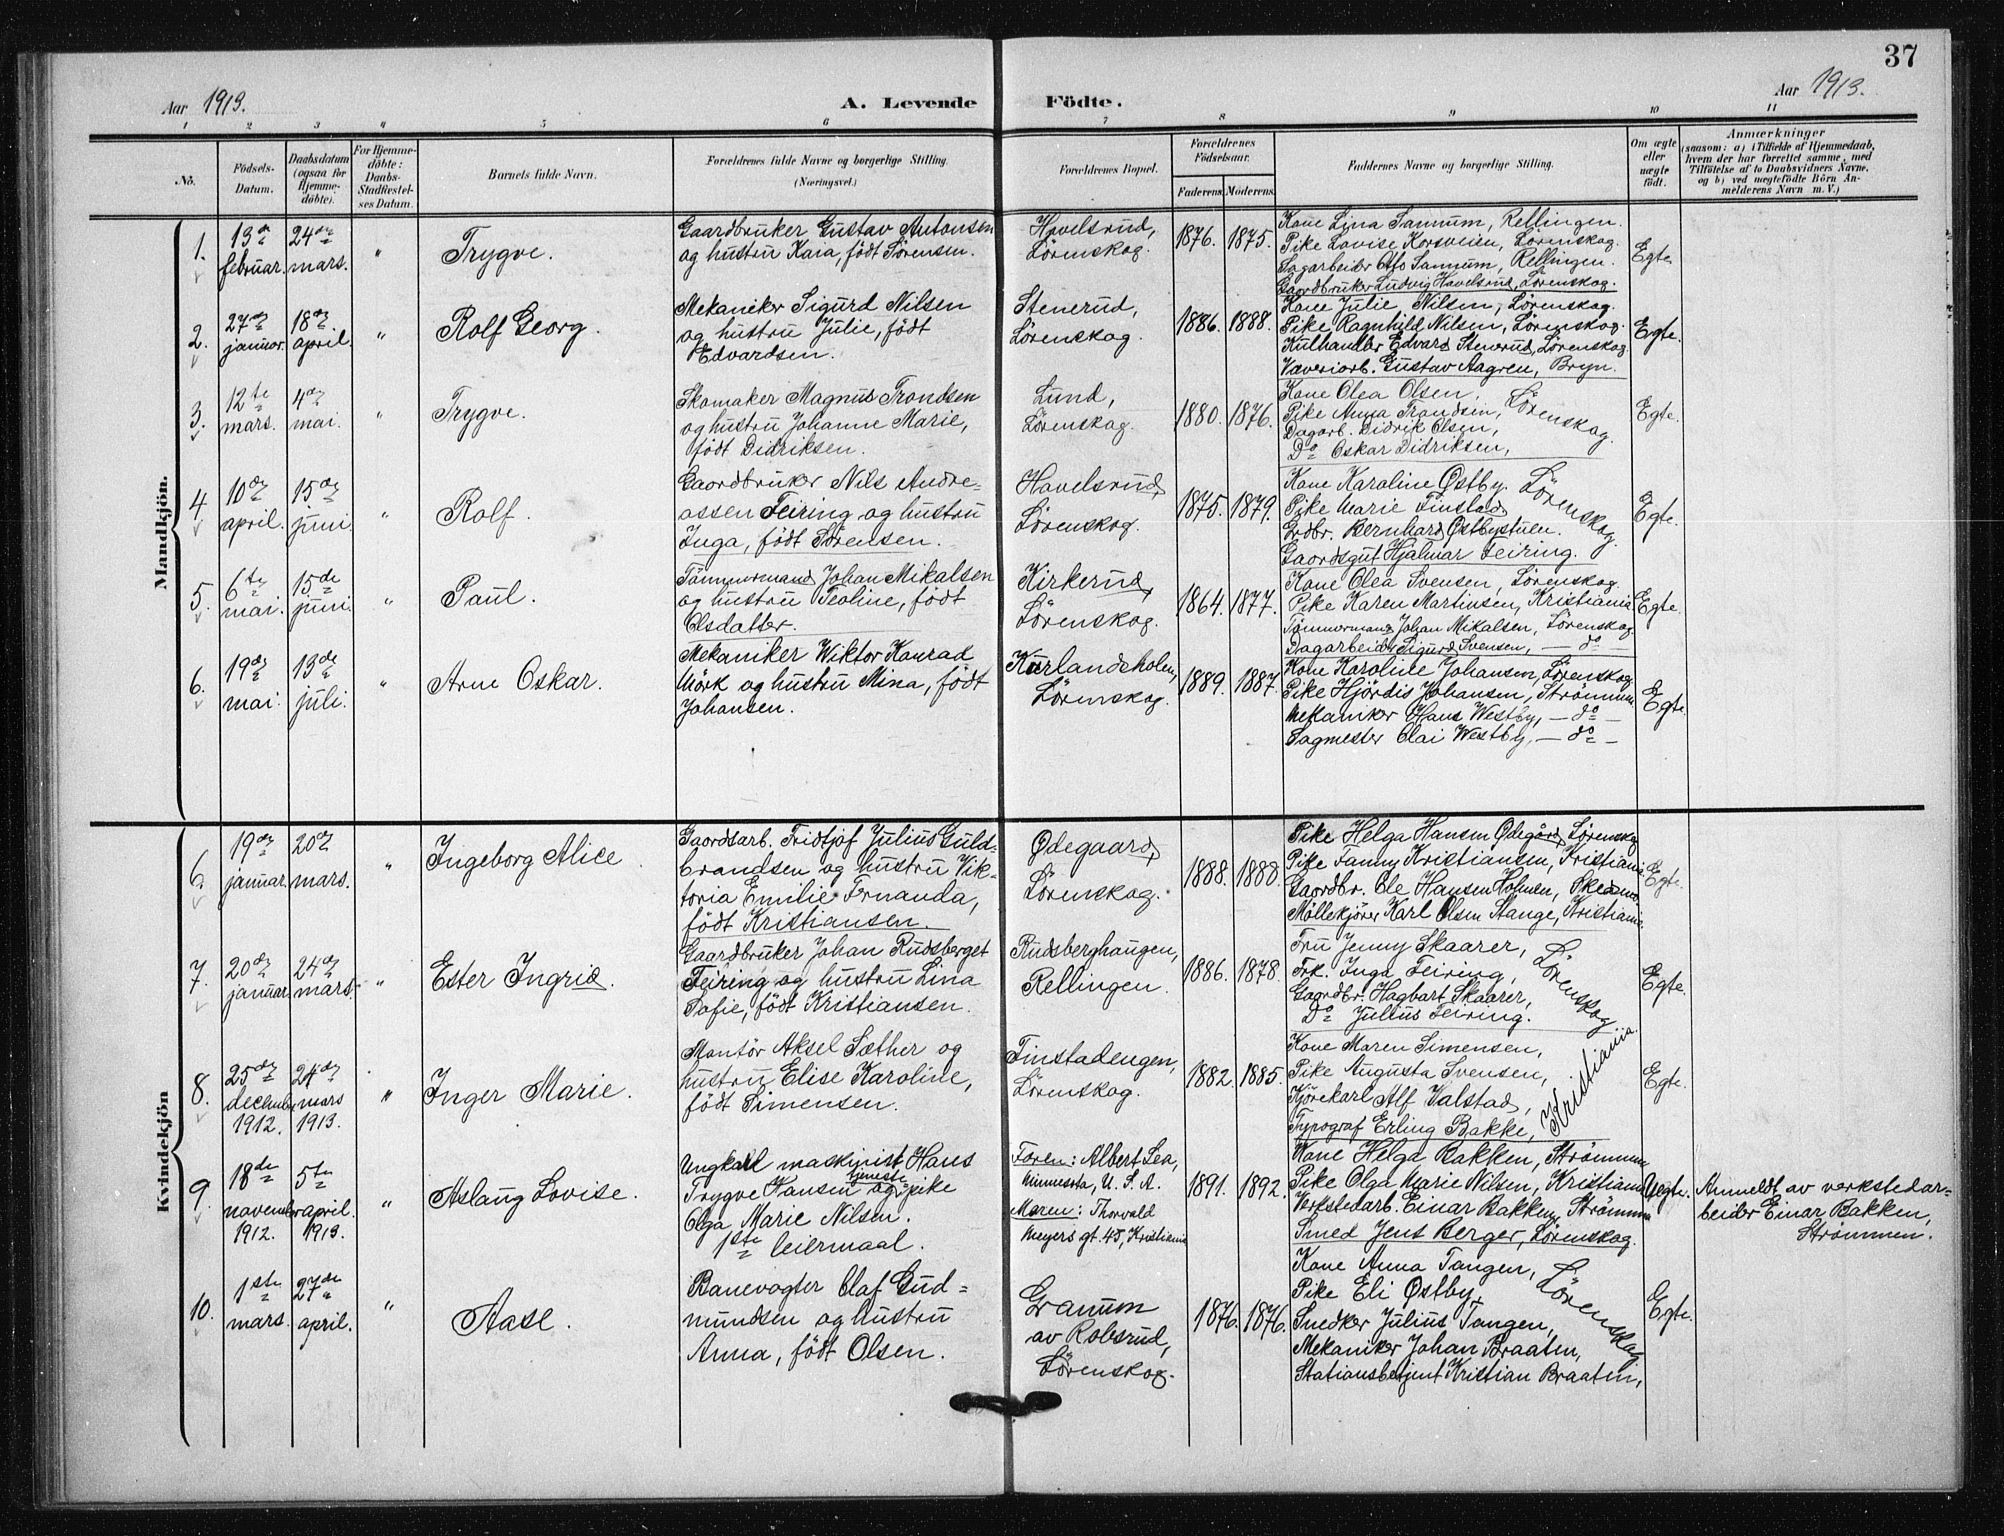 37
Aar 1913.
A. Levende Födte.
Aar 1913.
1 2 3 4 5 6 7 8 9 10 11
No.
Födsels-
Datum.
Daabsdatum
(ogsaa for
Hjemme-
döbte).
For Hjemme-
döbte:
Daabs-
Stadfæstel-
ses Datum.
Barnets fulde Navn.
Forældrenes fulde Navne og borgerlige Stilling.
(Næringsvei.)
Forældrenes Bopæl.
Forældrenes
Födselsaar.
Faderens. Moderens.
Faddernes Navne og borgerlige Stilling.
Om ægte
eller
uægte
födt.
Anmærkninger
(saasom: a) i Tilfælde af Hjemmedaab,
hvem der har forrettet samme, med
Tilföielse af to Daabsvidners Navne,
og b) ved uægtefödte Börn An-
melderens Navn m. V.)
Mandkjön.
1.
13de
februar.
24de
mars.
"
Trygve.
Gaardbruker Gustav Antonsen
og hustru Kaia, født Sørensen.
Hovelsrud,
Lørenskog.
1876. 1875.
Kone Lina Sannum, Rellingen.
Pike Lovise Korsveien, Lørenskog.
Sagarbeider Otto Sannum, Rellingen.
Gaardbruker Ludvig Havelsrud, Lørenskog.
Egte.
2.
27de
januar.
18de
april.
"
Rolf Georg.
Mekaniker Sigurd Nilsen
og hustru Julie, født
Edvardsen.
Stenerud,
Lørenskog.
1886. 1888.
Kone Julie Nilsen, Lørenskog.
Pike Ragnhild Nilsen, Lørenskog.
Kulhandler Edvard Stenerud, Lørenskog.
Væveriarb. Gustav Aagren, Bryn.
Egte.
3.
12te
mars.
4de
mai.
"
Trygve.
Skomaker Magnus Trondsen
og hustru Johanne Marie,
født Didriksen.
Lund,
Lørenskog.
1880. 1876.
Kone Olea Olsen,
Pike Anna Trondsen,
Dagarb. Didrik Olsen,
Do Oskar Didriksen,
Lørenskog.
Egte.
4
10de
april.
15de
juni
"
Rolf.
Gaardbruker Nils Andre-
assen Feiring og hustru
Inga, født Sørensen.
Havelsrud,
Lørenskog.
1875. 1879.
Kone Karoline Østby.
Pike Marie Finstad
Grdbr. Bernhard Østbystuen.
Gaardsgut Hjalmar Feiring.
Lørenskog.
Egte.
5.
6te
mai.
15de
juni.
"
Paul.
Tømmermand Johan Mikalsen
og hustru Teoline, født
Olsdatter.
Kirkerud,
Lørenskog.
1864. 1877.
Kone Olea Svensen, Lørenskog
Pike Karen Martinsen, Kristiania
Tømmermand Johan Mikalsen, Lørenskog.
Dagarbeider Sigurd Svensen, — do —
Egte.
6.
19de
mai.
13de
juli.
"
Arne Oskar.
Mekaniker Wiktor Konrad
Mörk og hustru Mina, født
Johansen.
Kurlandsholen,
Lørenskog.
1889. 1887.
Kone Karoline Johansen, Lørenskog
Pike Hjördis Johansen, Strömmen
Mekaniker Hans Westby, — do —
Sagmester Olai Westby, — do —
Egte.
Kvindekjön
6.
19de
januar.
20de
mars.
"
Ingeborg Alice
Gaardsarb. Fridtjof Julius Guld-
brandsen og hustru Vik-
toria Emilie Fernanda,
født Kristiansen.
Ødegaard,
Lørenskog.
1888. 1888.
Pike Helga Hansen Ødegård, Lørenskog
Pike Fanny Kristiansen, Kristiania
Gaardbr. Ole Hansen Holmen, Skedsmo
Møllekjører Karl Olsen Stange, Kristiania
Egte.
7.
20de
januar.
24de
mars.
"
Ester Ingrid.
Gaardbruker Johan Rudsberget
Feiring og hustru Lina
Sofie, født Kristiansen.
Rudsberghaugen,
Rellingen.
1886. 1878.
Fru Jenny Skaarer,
Frk. Inga Feiring,
Gaardbr. Hagbart Skaarer,
Do Julius Feiring.
Lørenskog
Egte.
8.
25de
december
1912.
24de
mars
1913.
"
Inger Marie.
Montör Aksel Sæther og
hustru Elise Karoline,
født Simensen.
Finstadengen,
Lørenskog.
1882. 1885.
Kone Maren Simensen,
Pike Augusta Svensen,
Kjörekarl Alf Valstad,
Typograf Erling Bakke,
Kristiania.
Egte.
9.
18de
november
1912.
5te
april.
1913.
"
Aslaug Lovise.
Ungkarl maskinist Hans
Trygve Hansen og tjeneste pike
Olga Marie Nilsen.
1ste leiermaal.
Faren: Albert Lea,
Minnesota, U. S. A.
Moren: Thorvald
Meyers gt. 45, Kristiania
1891. 1892.
Kone Helga Bakken, Strömmen
Pike Olga Marie Nilsen, Kristiania
Verkstedarb. Einar Bakken, Strömmen
Smed Jens Berger, Lørenskog.
Uegte.
Anmeldt av verkstedar-
beider Einar Bakken,
Strömmen.
10.
1ste
mars.
27de
april.
"
Aase.
Banevogter Olaf Gud-
mundsen og hustru
Anna, født Olsen.
Granum
av Robsrud,
Lørenskog.
1876. 1876.
Kone Anna Tangen,
Pike Eli Østby,
Snedker Julius Tangen,
Mekaniker Johan Braaten,
Stationsbetjent Kristian Braaten,
Lørenskog
Egte.